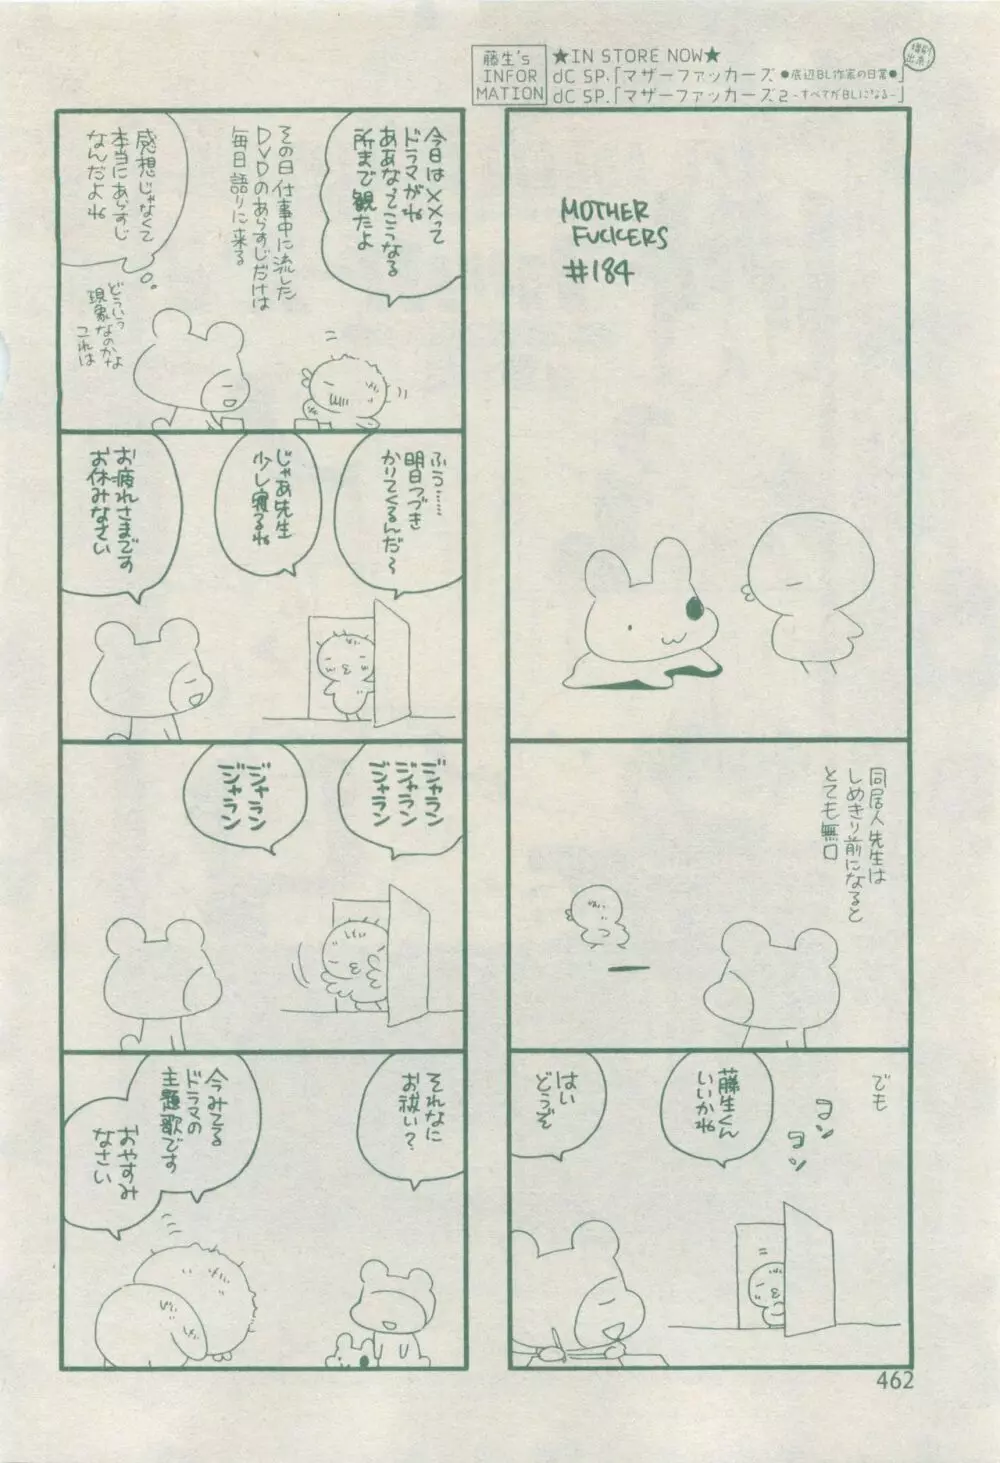 藤生's
INFOR
MATION
★IN STORE NOW★
dC SP.「マザーファッカーズ ●底辺BL作家の日常●」
dC SP.「マザーファッカーズ2 -すべてがBLになる-」
MOTHER
FUCKERS
#184
同居人先生は
しめきり前になると
とても無口
でも
コン
コン
藤生くん
いいかね
はい
どうぞ
今日は××って
ドラマがね
ああなってこうなる
所まで観たよ
その日仕事中に流した
DVDのあらすじだけは
毎日語りに来る
感想じゃなくて
本当にあらすじ
なんだよね
どういう
現象なのかな
これは
ふう……
明日つづき
かりてくるんだ〜
じゃあ先生
少し寝るね
お疲れさまです
お休みなさい
ジャラン
ジャラン
ジャラン
ジャラン
ジャラン
それなに
お祓い?
今みてる
ドラマの
主題歌です
おやすみ
なさい
462